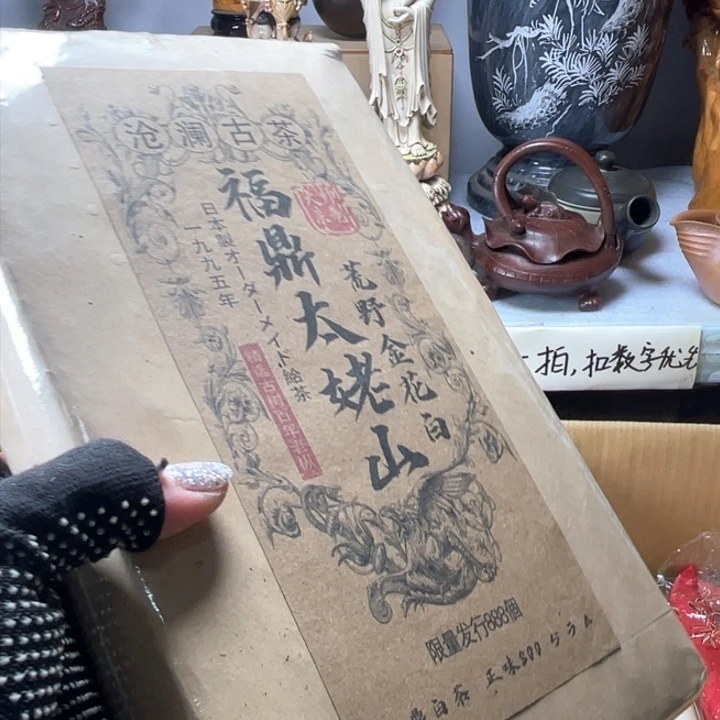 沧澜古茶
荒野金花白
福鼎太姥山
日本製オーダーメイド絵茶
一九九五年
限量发行888個
鼎白茶 正味800グラム
拍,扣数字优先